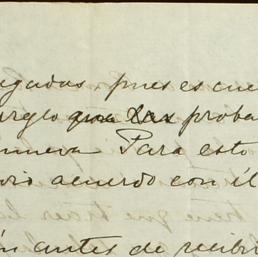 egadas, pues es cue
urglo que las proba
nueva Para esto
vio acuerdo con él
ón antes de recibi